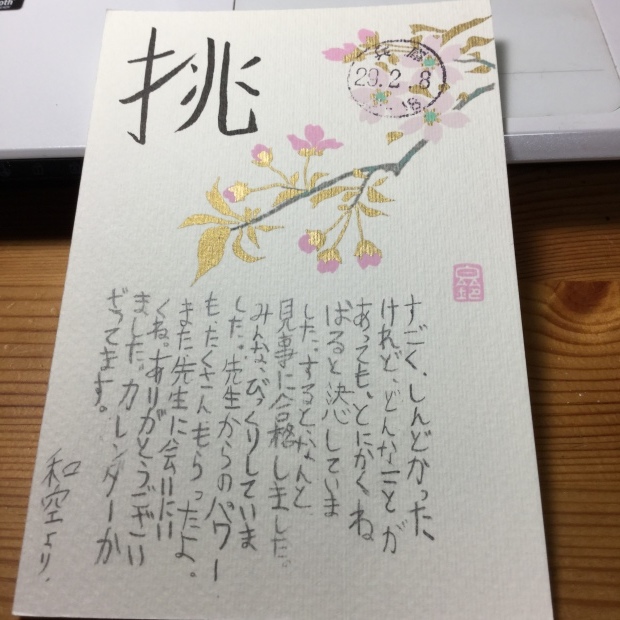 挑
29.2.8
すごく、しんどかった、
けれど、どんなことが
あっても、とにかくね
ばると決心していま
した。するとなんと
見事に合格しました。
みんな、びっくりしていま
した。先生からのパワー
も、たくさんもらったよ。
また、先生に会いにい
くね。ありがとうござい
ました。カレンダーか
ざってます。
和空より.